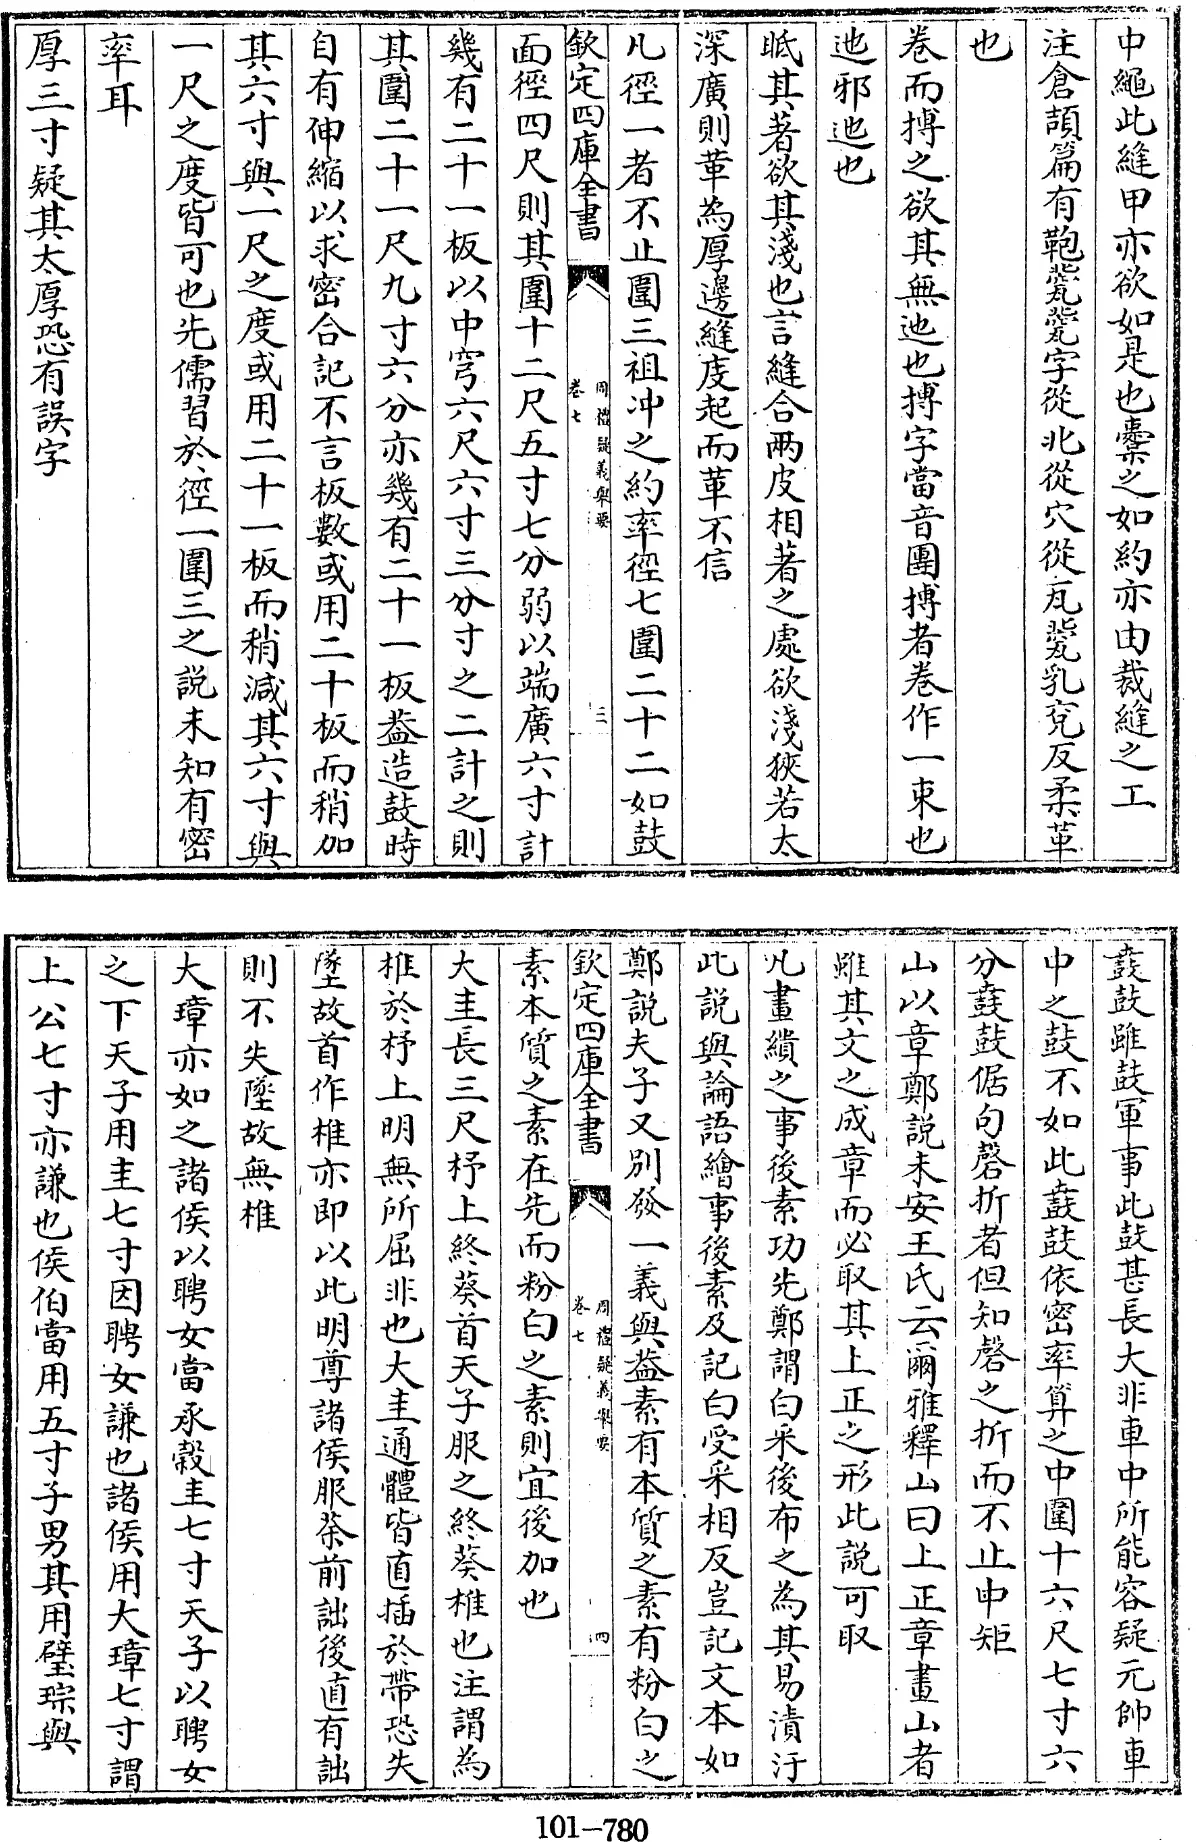 中繩此縫甲亦欲如是也櫜之如約亦由裁縫之工
注倉頡篇有鞄㼱㼱字從北從穴從瓦㼱乳兗反柔革
也
卷而搏之欲其無迆也搏字當音團搏者卷作一束也
迆邪迆也
眡其著欲其淺也言縫合兩皮相著之處欲淺狹若太
深廣則革為厚邊縫度起而革不信
凡徑一者不止圍三祖冲之約率徑七圍二十二如鼓
欽定四庫全書
周禮疑義舉要
卷七
三
面徑四尺則其圍十二尺五寸七分弱以端廣六寸計
幾有二十一板以中穹六尺六寸三分寸之二計之則
其圍二十一尺九寸六分亦幾有二十一板葢造鼓時
自有伸縮以求密合記不言板數或用二十板而稍加
其六寸與一尺之度或用二十一板而稍減其六寸與
一尺之度皆可也先儒習於徑一圍三之說未知有密
率耳
厚三寸疑其太厚恐有誤字
鼖鼓雖鼓軍事此鼓甚長大非車中所能容疑元帥車
中之鼓不如此鼖鼓依密率算之中圍十六尺七寸六
分鼖鼓倨句磬折者但知磬之折而不止中矩
山以章鄭說未安王氏云爾雅釋山曰上正章畫山者
雖其文之成章而必取其上正之形此說可取
凡畫繢之事後素功先鄭謂白采後布之為其易漬汙
此說與論語繪事後素及記白受采相反豈記文本如
鄭說夫子又別發一義與葢素有本質之素有粉白之
欽定四庫全書
周禮疑義舉要
卷七
四
素本質之素在先而粉白之素則宜後加也
大圭長三尺杼上終葵首天子服之終葵椎也注謂為
椎於杼上明無所屈非也大圭通體皆直插於帶恐失
墜故首作椎亦即以此明尊諸侯服荼前詘後直有詘
則不失墜故無椎
大璋亦如之諸侯以聘女當承穀圭七寸天子以聘女
之下天子用圭七寸因聘女謙也諸侯用大璋七寸謂
上公七寸亦謙也侯伯當用五寸子男其用璧琮與
101-780